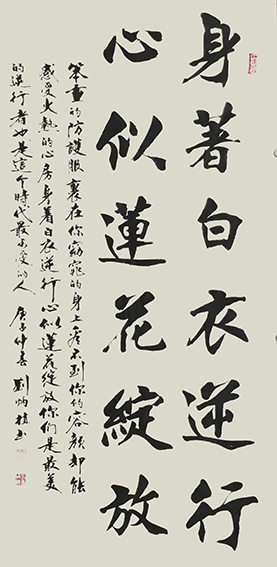 身著白衣逆行
心似蓮花綻放
笨重的防護服裹在你窈窕的身上看不到你的容顏卻能
感受火熱的心房身著白衣逆行心似蓮花綻放你們是最美
的逆行者也是這个時代最可爱的人 庚子仲春 劉炳植书